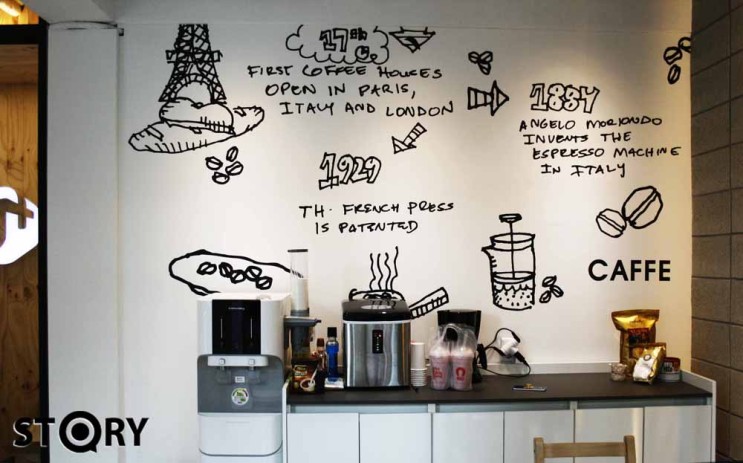 17th C
FIRST COFFEE HOUSES
OPEN IN PARIS,
ITALY AND LONDON
1884
ANGELO MORIONDO
INVENTS THE
ESPRESSO MACHINE
IN ITALY
1929
TH. FRENCH PRESS
IS PATENTED
CAFFE
STQRY